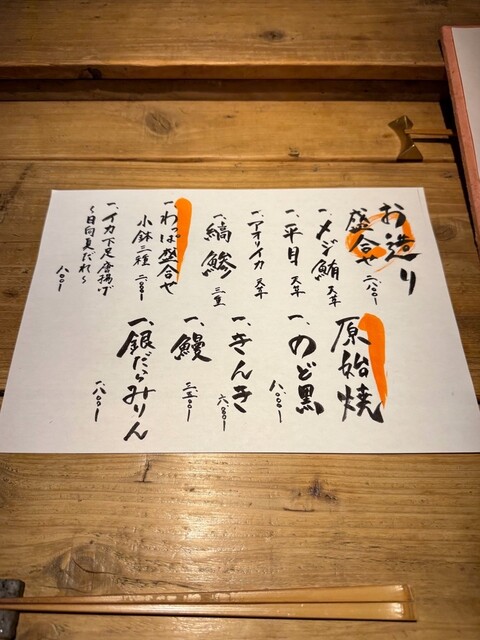 お造り
盛合せ 二、八〇〇
一、メジ鮪 天草
一、平目 天草
一、アオリイカ 天草
一、縞鯵 三重
一、わっぱ盛合せ
小鉢三種 二、五〇〇
一、イカ下足唐揚げ
〜日向夏だれ〜
八〇〇
原始焼
一、のど黒
八、〇〇〇
一、きんき
六、八〇〇
一、鰻
三、五〇〇
一、銀だらみりん
一、八〇〇